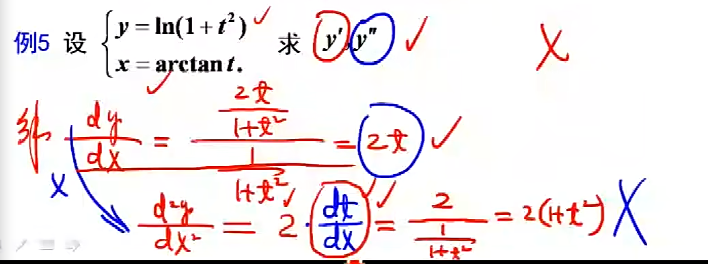 例5 设 { y = ln(1+t²) ✓ 求 y′, y″ ✓ X
x = arctan t. ✓
解 dy/dx = (2t/(1+t²))/(1/(1+t²)) = 2t ✓
X d²y/dx² = 2 · dt/dx ✓ = 2/(1/(1+t²)) = 2(1+t²) X